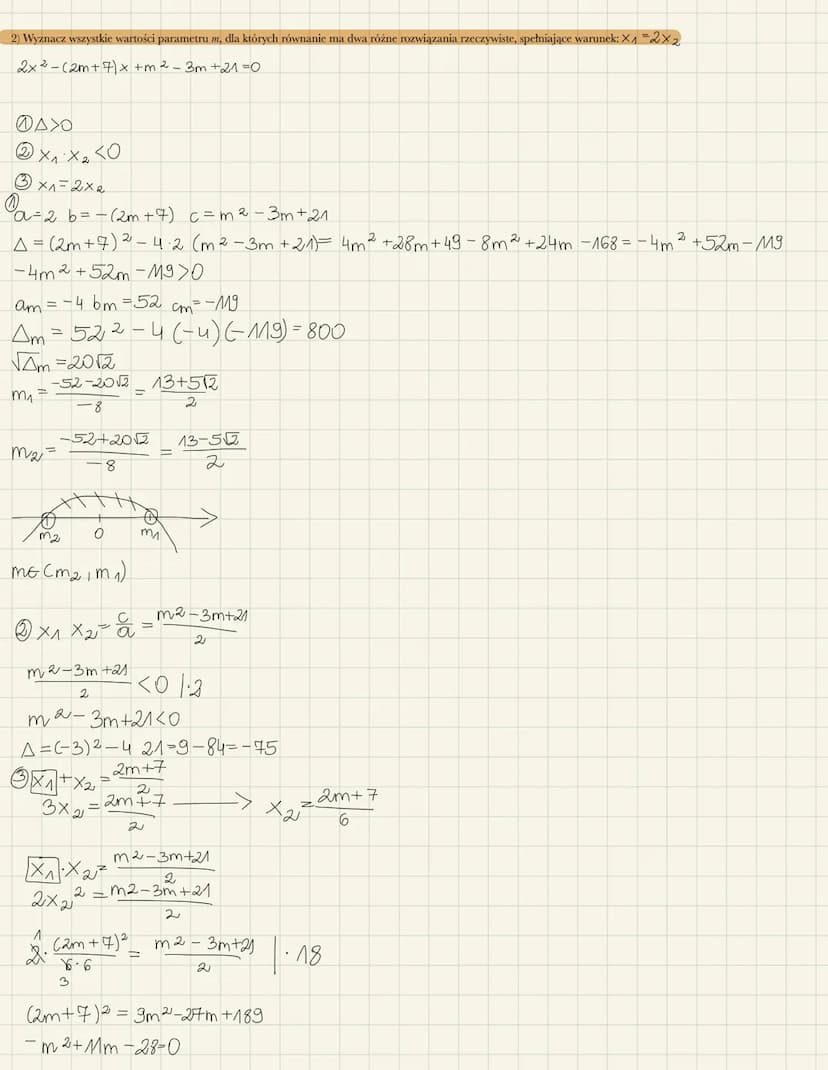 2) Wyznacz wszystkie wartości parametru m, dla których równanie ma dwa różne rozwiązania rzeczywiste, spełniające warunek: x₁ = 2x₂
2x² - (2m+7)x + m² - 3m + 21 = 0
① Δ>0
② x₁ · x₂ < 0
③ x₁ = 2x₂
①
a=2 b= -(2m+7) c= m² - 3m+21
Δ = (2m+7)² - 4·2 (m² - 3m + 21) = 4m² + 28m + 49 - 8m² + 24m - 168 = -4m² + 52m - 119
-4m² + 52m - 119 > 0
am = -4 bm = 52 cm = -119
Δm = 52² - 4 (-4) (-119) = 800
√Δm = 20√2
m₁ = (-52-20√2)/(-8) = (13+5√2)/2
m₂ = (-52+20√2)/(-8) = (13-5√2)/2
m₂ 0 m₁
m∈(m₂, m₁)
② x₁ x₂ = c/a = (m²-3m+21)/2
(m²-3m+21)/2 < 0 |·2
m² - 3m+21<0
Δ = (-3)² - 4 21 = 9 - 84 = -75
③ x₁ + x₂ = (2m+7)/2
3x₂ = (2m+7)/2 → x₂ = (2m+7)/6
x₁ · x₂ = (m²-3m+21)/2
2x₂² = (m²-3m+21)/2
1
2 · (2m+7)²/(6·6) = (m² - 3m+21)/2 | · 18
3
(2m+7)² = 9m²-27m+189
-m²+11m-28=0